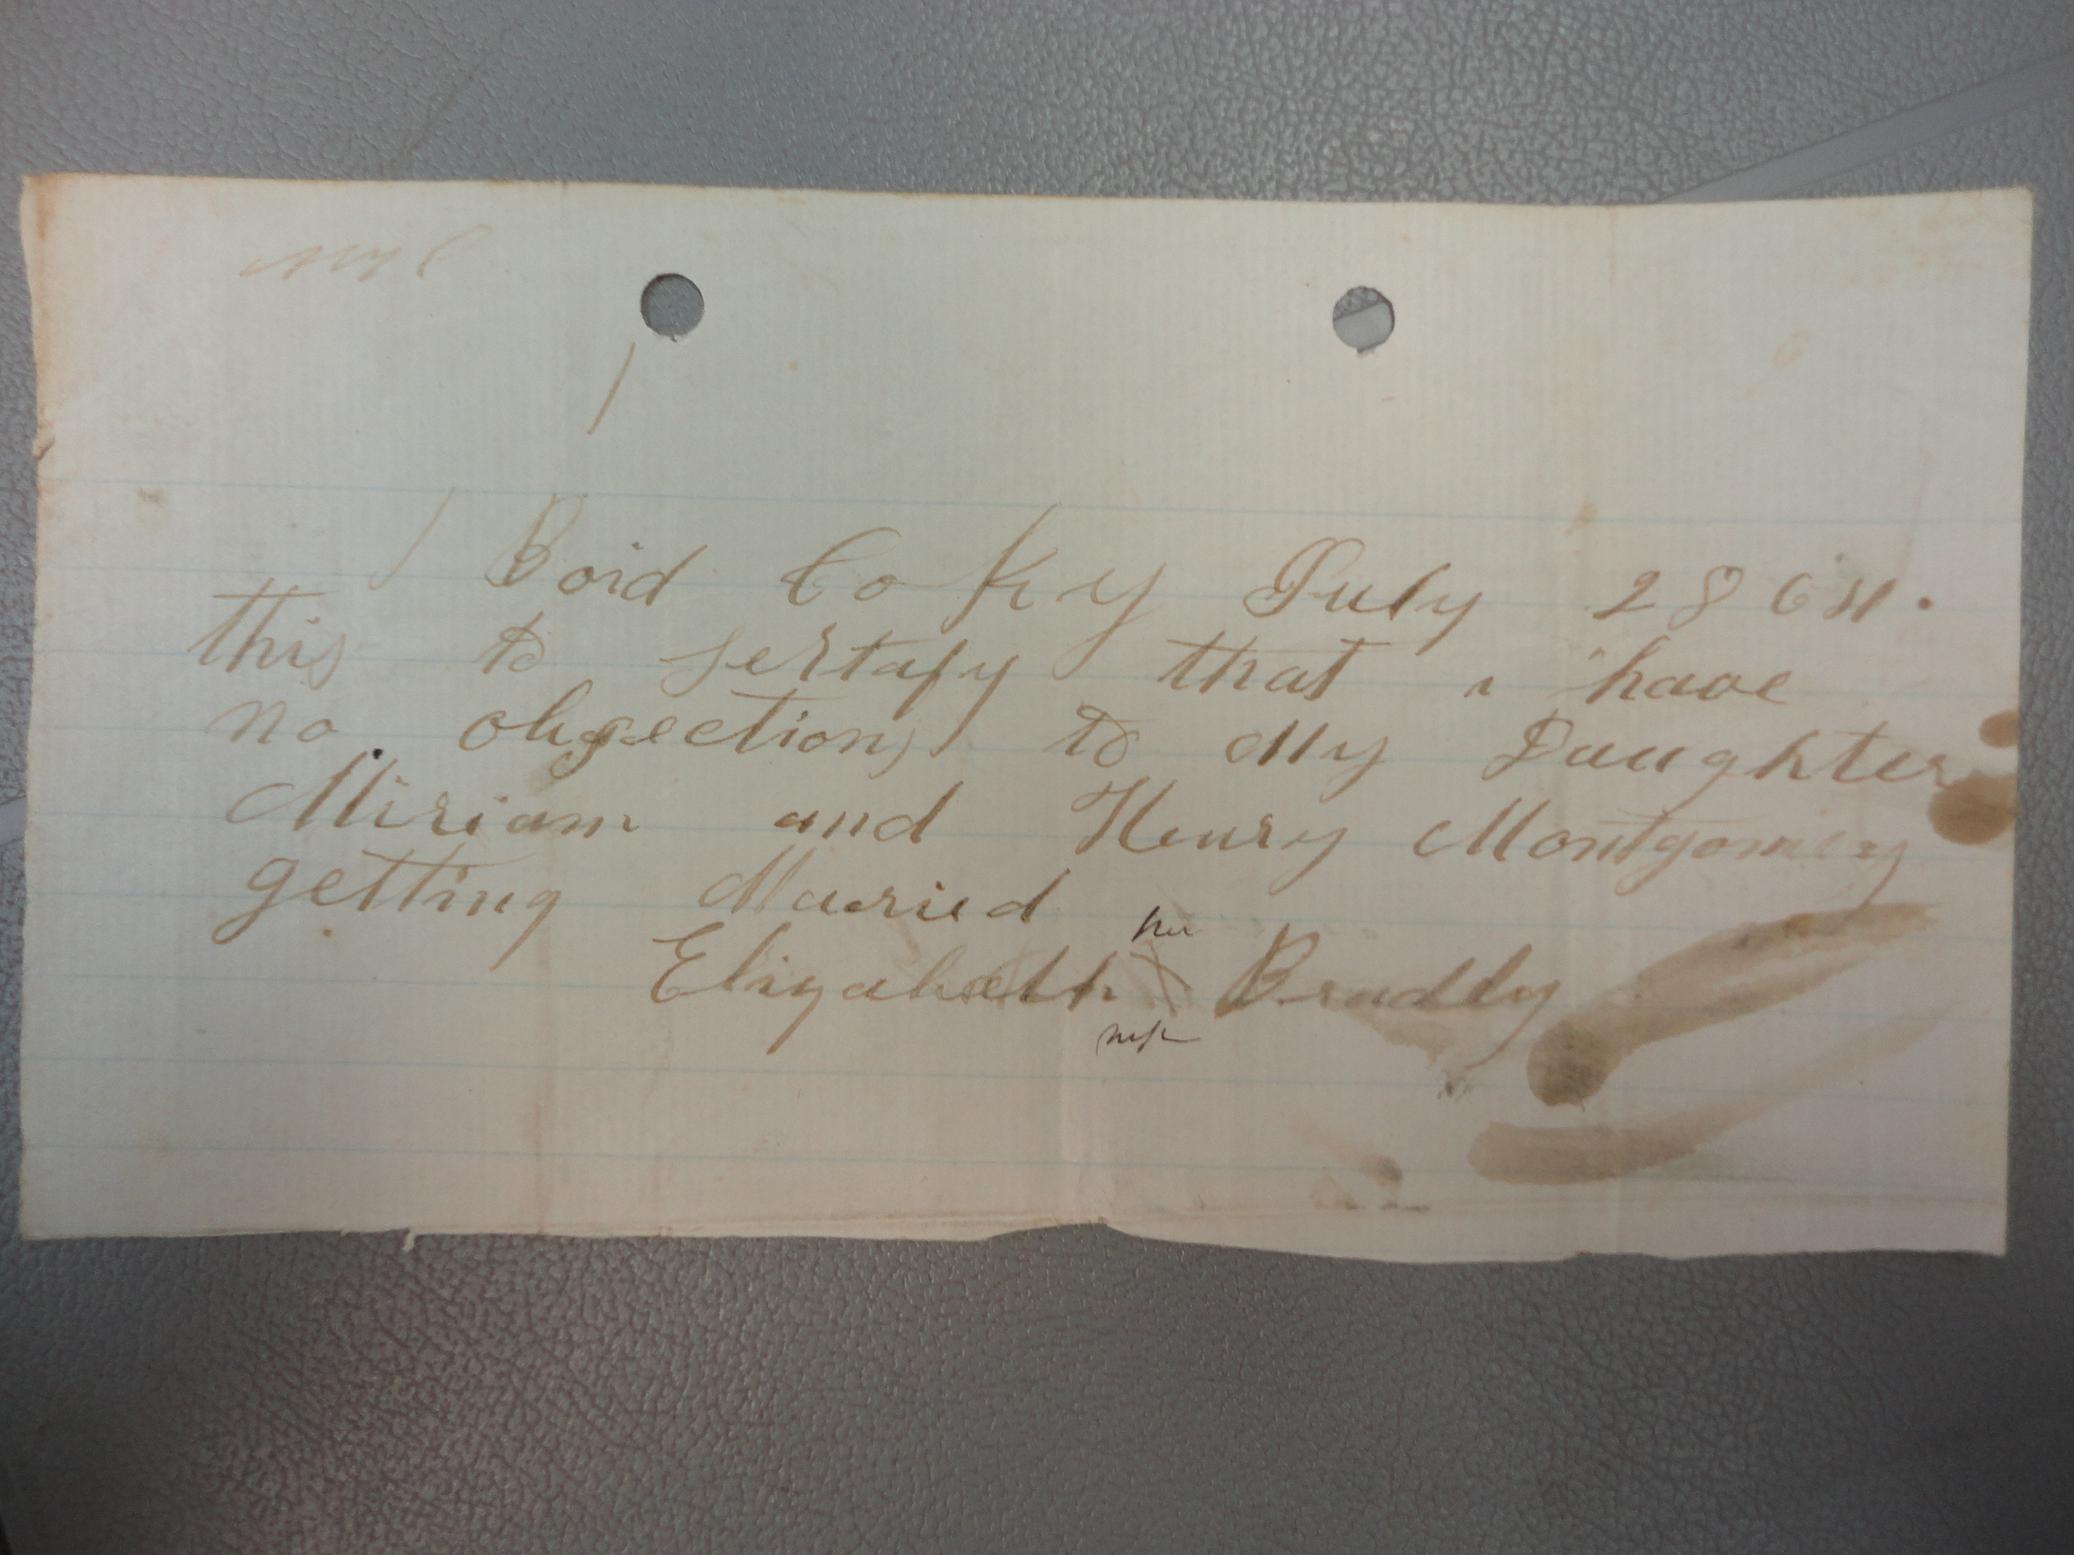 Boid Co Ky July 28 64.
this to sertafy that i have
no obgections to My Daughter
Miriam and Henry Montgomery
getting Married
her
Elizabeth X Bradly
mk